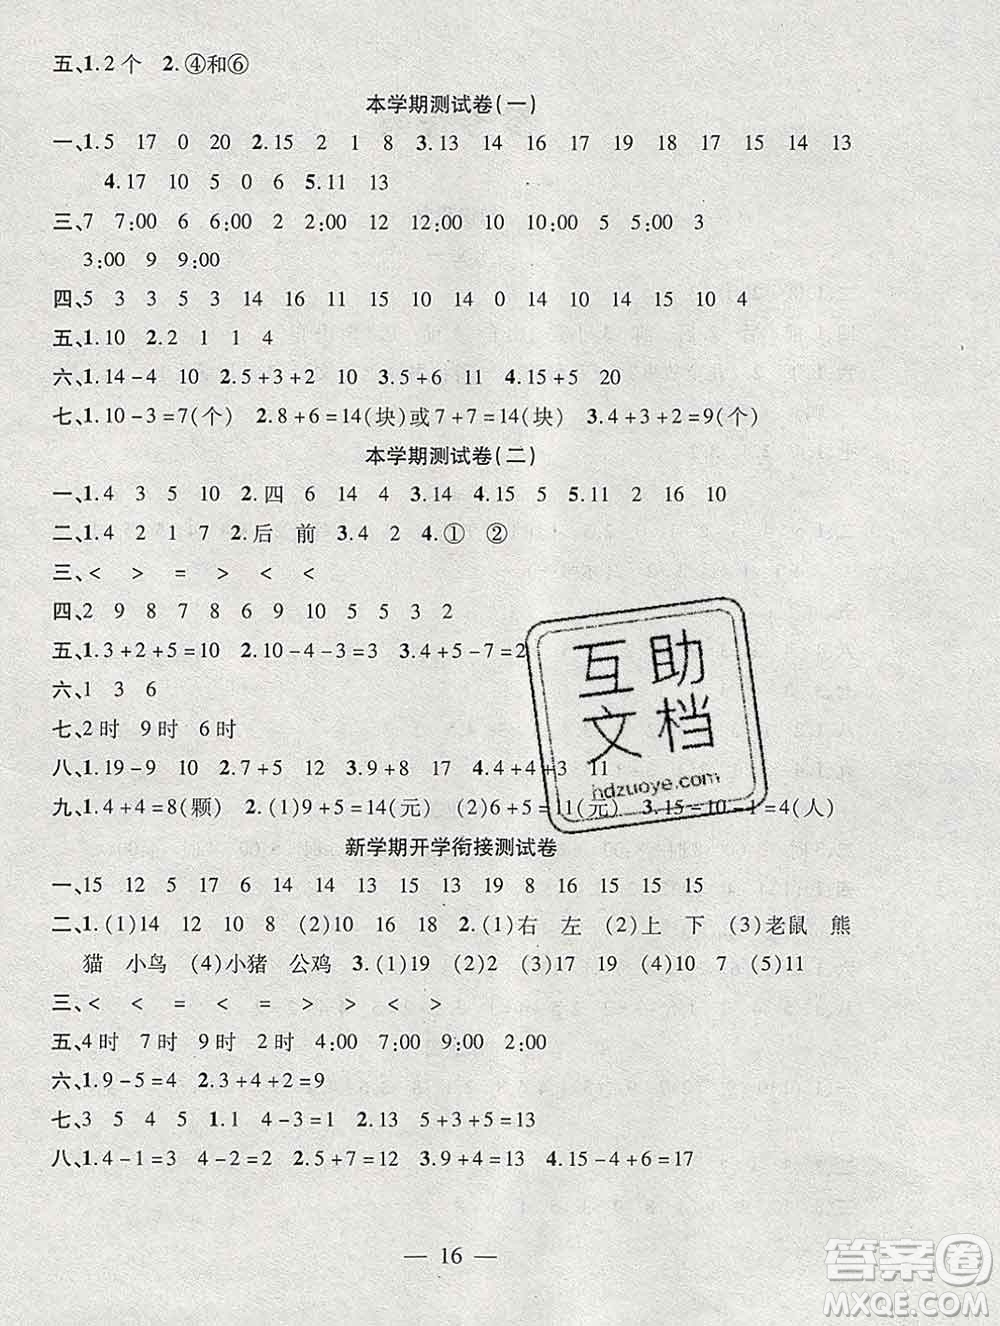 五、1.2个 2.④和⑥
本学期测试卷(一)
一、1.5 17 0 20 2.15 2 1 8 3.13 14 15 16 17 14 15 14 13
4.17 10 5 0 6 5.11 13
三、7 7:00 6 6:00 2 2:00 12 12:00 10 10:00 5 5:00 3
3:00 9 9:00
四、5 3 3 5 3 14 16 11 14 10 14 0 14 10 10 4
五、1.10 2.2 1 1 4
六、1.14-4 10 2.5+3+2 10 3.5+6 11 4.15+5 20
七、1.10-3=7(个) 2.8+6=14(块)或7+7=14(块) 3.4+3+2=9(个)
本学期测试卷(二)
一、1.4 3 5 10 2.四 6 14 4 3.14 4.15 5 5.11 2 16 10
二、1.4 2 1 7 2.后 前 3.4 2 4.① ②
三、< > = > < <
四、2 9 8 7 8 6 9 10 5 5 3 2
五、1.3+2+5=10 2.10-4-3=3 3.4+5-7=2
六、1 3 6
七、2时 9时 6时
八、1.19-9 10 2.7+3 10 3.10+7 17 4.4+4+3 11
九、1.4+4=8(颗) 2.(1)9+5=14(元) (2)6+5=11(元) 3.15-10-1=4(人)
新学期开学衔接测试卷
一、15 12 5 17 6 14 14 15 13 19 8 16 15 15 15
二、1.(1)14 12 10 8 (2)10 16 18 2.(1)右 左 (2)上 下 (3)老鼠 熊
猫 小鸟 (4)小猪 公鸡 3.(1)19 (2)2 (3)17 19 (4)9 7 (5)11
三、< < = < = > > < >
五、4时 7时 9时 2时 4:00 7:00 9:00 2:00
六、1.9-5=4 2.3+4+2=9
七、3 5 4 5 1.1 4-3=1 2.13 5+3+5=13
八、1.4-1=3 4-2=2 2.5+7=12 3.9+4=13 4.15-4+6=17
— 16 —
互助
文档
hdzuoye.com
答案圈
MXQE.COM